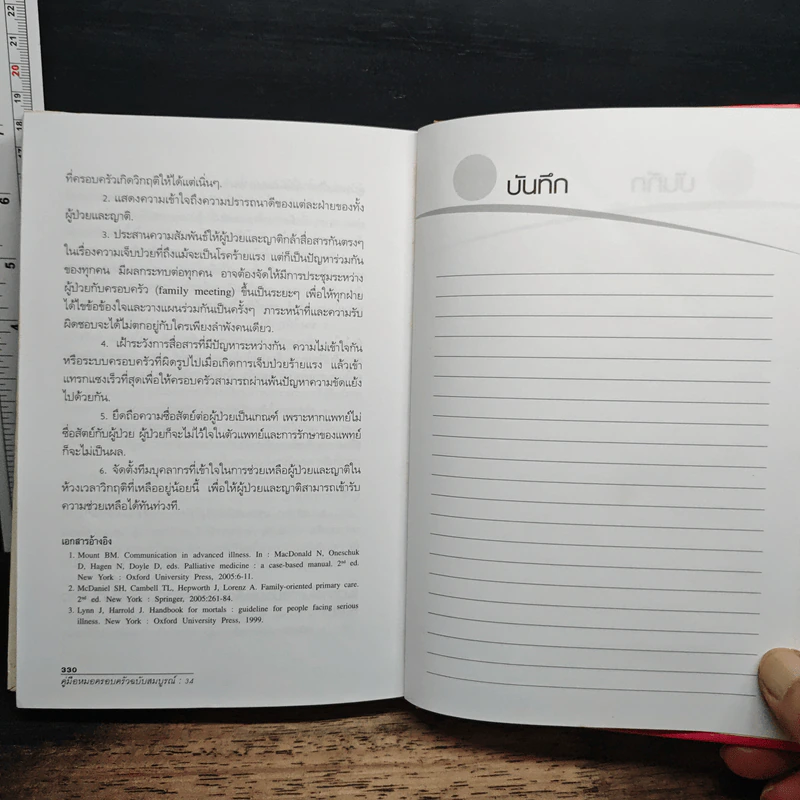 22
21
20
19
6
5
4
ที่ครอบครัวเกิดวิกฤติให้ได้แต่เนิ่นๆ.
2. แสดงความเข้าใจถึงความปรารถนาดีของแต่ละฝ่ายของทั้ง
ผู้ป่วยและญาติ.
3. ประสานความสัมพันธ์ให้ผู้ป่วยและญาติกล้าสื่อสารกันตรงๆ
ในเรื่องความเจ็บป่วยที่ถึงแม้จะเป็นโรคร้ายแรง แต่ก็เป็นปัญหาร่วมกัน
ของทุกคน มีผลกระทบต่อทุกคน อาจต้องจัดให้มีการประชุมระหว่าง
ผู้ป่วยกับครอบครัว (family meeting) ขึ้นเป็นระยะๆ เพื่อให้ทุกฝ่าย
ได้ไขข้อข้องใจและวางแผนร่วมกันเป็นครั้งๆ ภาระหน้าที่และความรับ
ผิดชอบจะได้ไม่ตกอยู่กับใครเพียงลำพังคนเดียว.
4. เฝ้าระวังการสื่อสารที่มีปัญหาระหว่างกัน ความไม่เข้าใจกัน
หรือระบบครอบครัวที่ผิดรูปไปเมื่อเกิดการเจ็บป่วยร้ายแรง แล้วเข้า
แทรกแซงเร็วที่สุดเพื่อให้ครอบครัวสามารถผ่านพ้นปัญหาความขัดแย้ง
ไปด้วยกัน.
5. ยึดถือความซื่อสัตย์ต่อผู้ป่วยเป็นเกณฑ์ เพราะหากแพทย์ไม่
ซื่อสัตย์กับผู้ป่วย ผู้ป่วยก็จะไม่ไว้ใจในตัวแพทย์และการรักษาของแพทย์
ก็จะไม่เป็นผล.
6. จัดตั้งทีมบุคลากรที่เข้าใจในการช่วยเหลือผู้ป่วยและญาติใน
ห้วงเวลาวิกฤติที่เหลืออยู่น้อยนี้ เพื่อให้ผู้ป่วยและญาติสามารถเข้ารับ
ความช่วยเหลือได้ทันท่วงที.
เอกสารอ้างอิง
1. Mount BM. Communication in advanced illness. In : MacDonald N, Oneschuk
D, Hagen N, Doyle D, eds. Palliative medicine : a case-based manual. 2nd ed.
New York : Oxford University Press, 2005:6-11.
2. McDaniel SH, Cambell TL, Hepworth J, Lorenz A. Family-oriented primary care.
2nd ed. New York : Springer, 2005:261-84.
3. Lynn J, Harrold J. Handbook for mortals : guideline for people facing serious
illness. New York : Oxford University Press, 1999.
330
คู่มือหมอครอบครัวฉบับสมบูรณ์ : 34
บันทึก